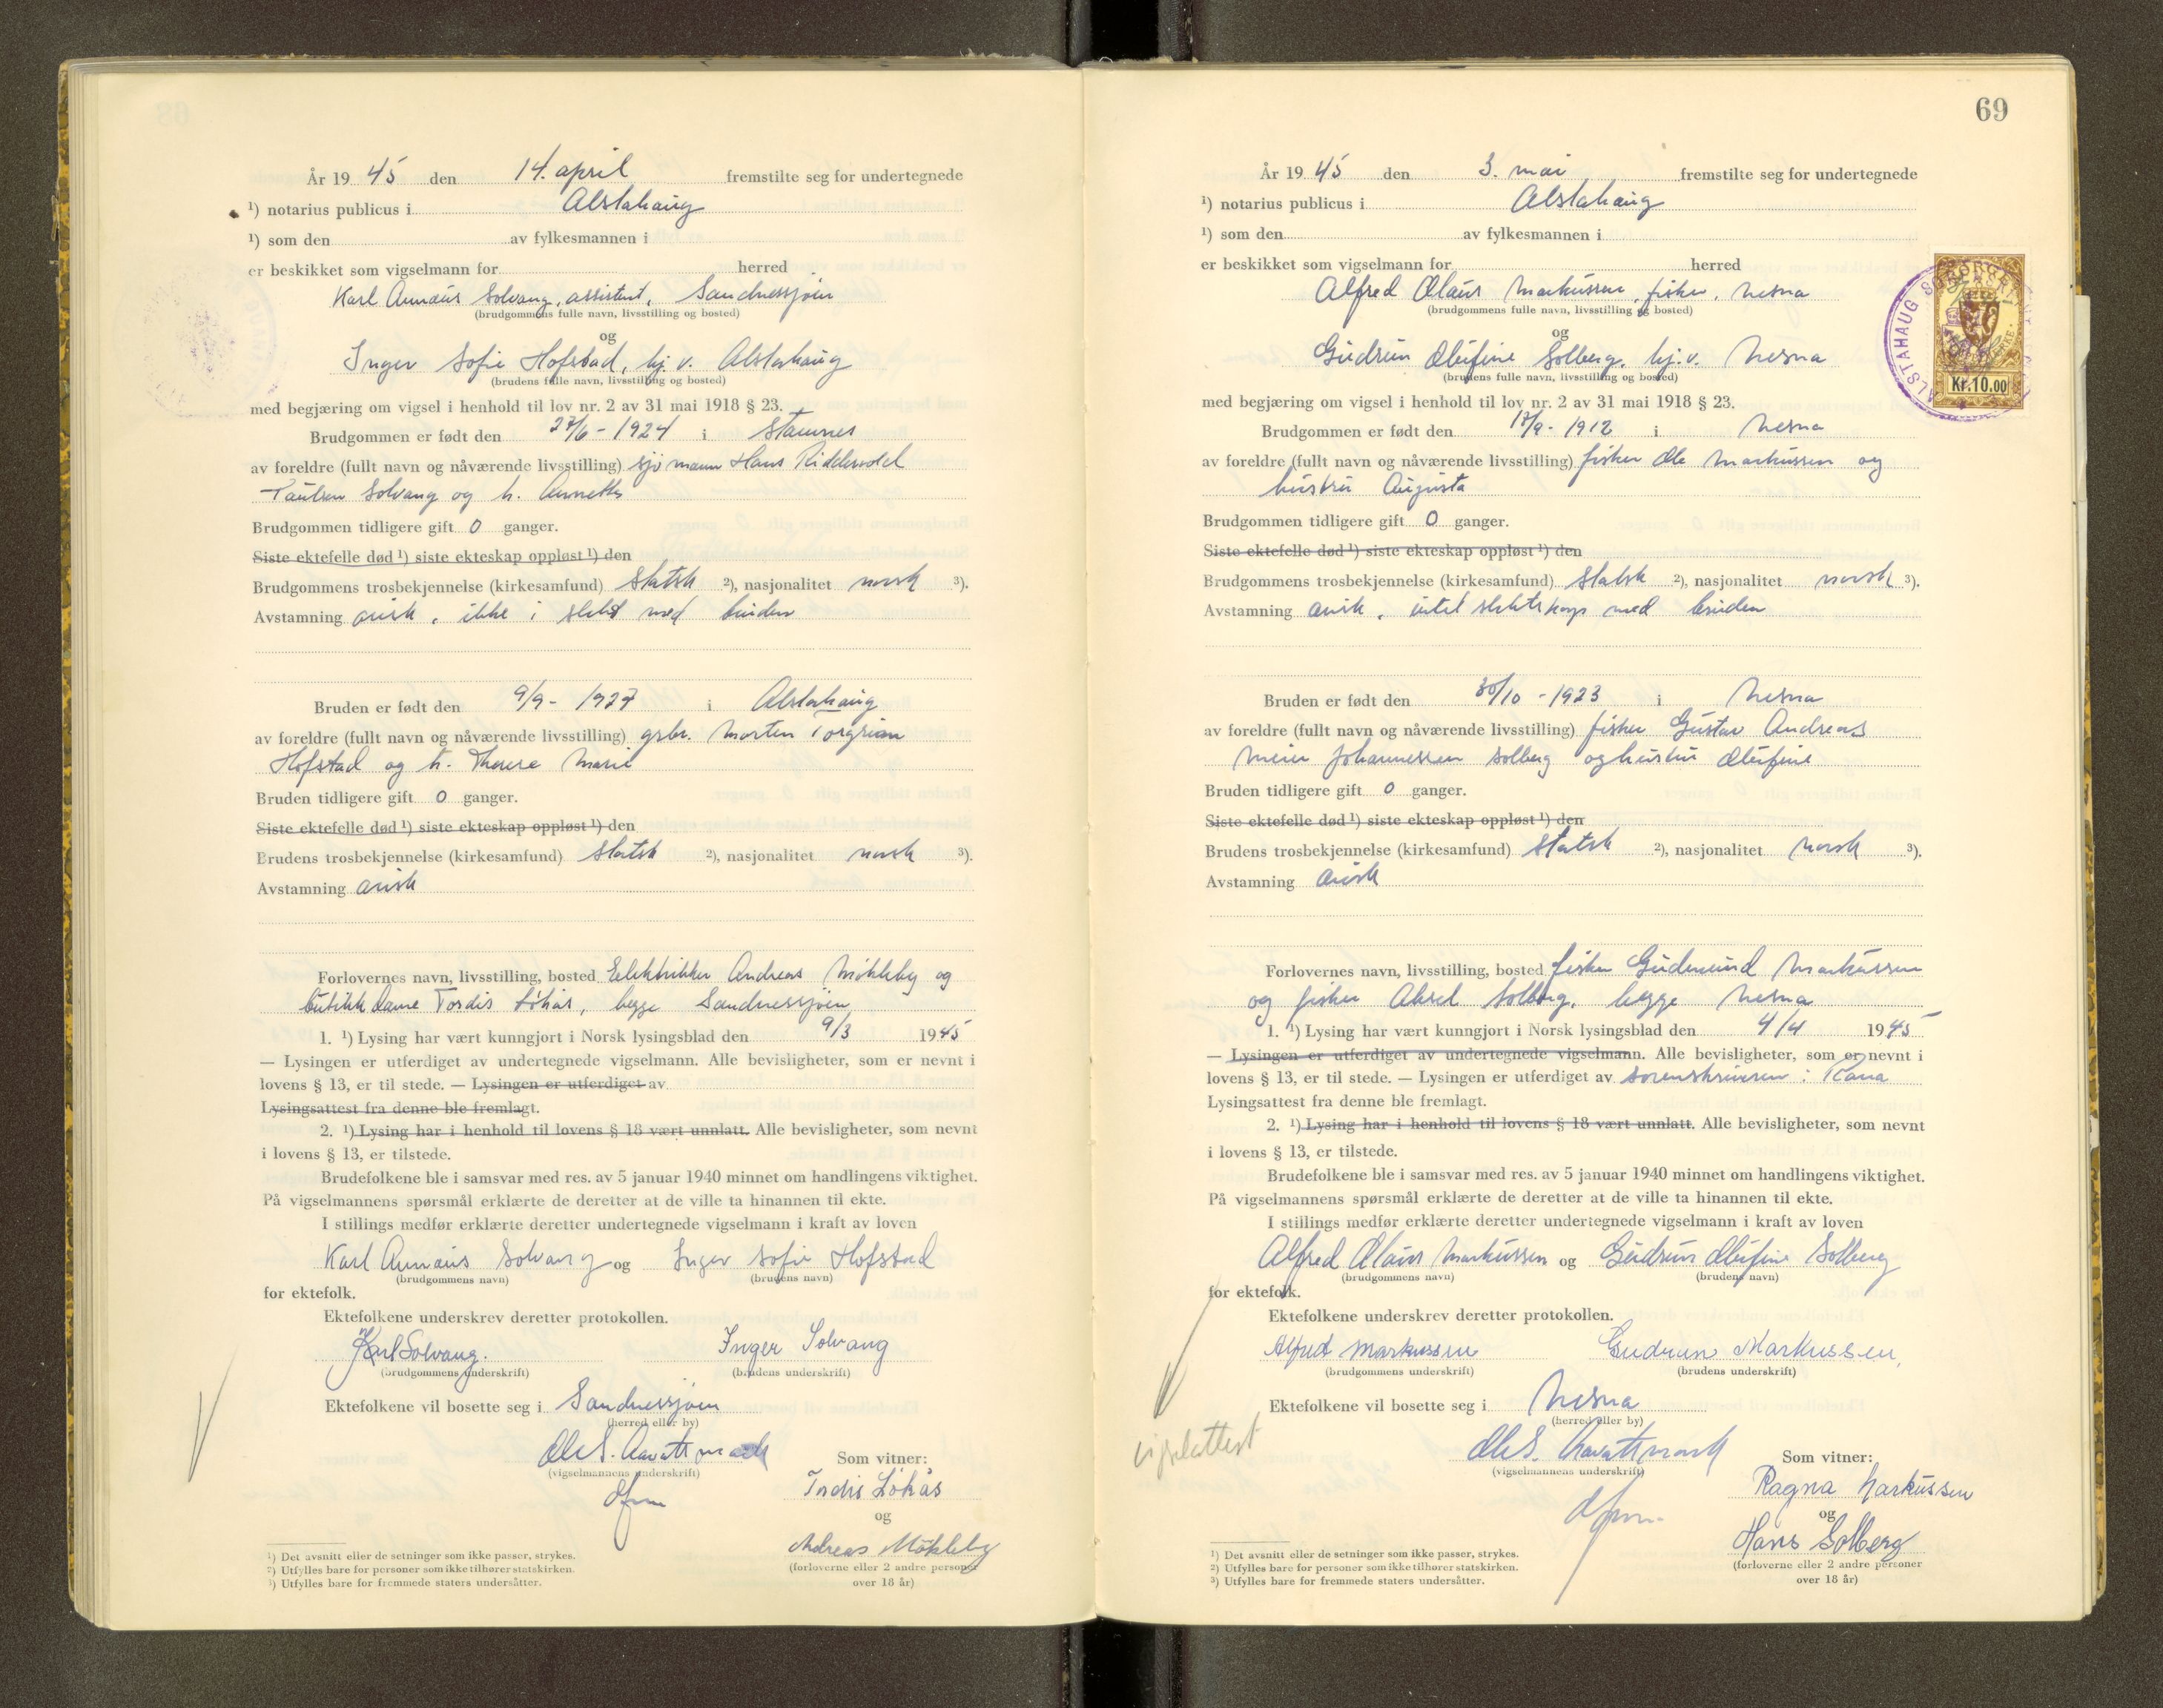 År 19 45 den 14. april fremstilte seg for undertegnede
¹) notarius publicus i Alstahaug
¹) som den av fylkesmannen i
er beskikket som vigselmann for herred
Karl Annæus Solvang, assistent, Sandnessjøen
(brudgommens fulle navn, livsstilling og bosted)
og
Inger Sofie Hofstad, hj. v. Alstahaug
(brudens fulle navn, livsstilling og bosted)
med begjæring om vigsel i henhold til lov nr. 2 av 31 mai 1918 § 23.
Brudgommen er født den 27/6 - 1924 i Stamnes
av foreldre (fullt navn og nåværende livsstilling) sjømann Hans Riddervold
Paulsen Solvang og h. Annette
Brudgommen tidligere gift 0 ganger.
Siste ektefelle død ¹) siste ekteskap oppløst ¹) den
Brudgommens trosbekjennelse (kirkesamfund) Statsk ²), nasjonalitet norsk ³).
Avstamning arisk, ikke i slekt med bruden
Bruden er født den 9/9 - 1927 i Alstahaug
av foreldre (fullt navn og nåværende livsstilling) grbr. Morten Torgrim
Hofstad og h. Therese Marie
Bruden tidligere gift 0 ganger.
Siste ektefelle død ¹) siste ekteskap oppløst ¹) den
Brudens trosbekjennelse (kirkesamfund) Statsk ²), nasjonalitet norsk ³).
Avstamning arisk
Forlovernes navn, livsstilling, bosted Elektriker Andreas Mökleby og
butikkdame Tordis Lökås, begge Sandnessjøen
1. ¹) Lysing har vært kunngjort i Norsk lysingsblad den 9/3 1945
— Lysingen er utferdiget av undertegnede vigselmann. Alle bevisligheter, som er nevnt i
lovens § 13, er til stede. — Lysingen er utferdiget av
Lysingsattest fra denne ble fremlagt.
2. ¹) Lysing har i henhold til lovens § 18 vært unnlatt. Alle bevisligheter, som nevnt
i lovens § 13, er tilstede.
Brudefolkene ble i samsvar med res. av 5 januar 1940 minnet om handlingens viktighet.
På vigselmannens spørsmål erklærte de deretter at de ville ta hinannen til ekte.
I stillings medfør erklærte deretter undertegnede vigselmann i kraft av loven
Karl Annæus Solvang og Inger Sofie Hofstad
(brudgommens navn) (brudens navn)
for ektefolk.
Ektefolkene underskrev deretter protokollen.
Karl Solvang. Inger Solvang
(brudgommens underskrift) (brudens underskrift)
Ektefolkene vil bosette seg i Sandnessjøen
(herred eller by)
Ole S. Aavatsmark Som vitner:
(vigselmannens underskrift)
Tordis Lökås
og
Andreas Mökleby
(forloverne eller 2 andre personer
over 18 år)
¹) Det avsnitt eller de setninger som ikke passer, strykes.
²) Utfylles bare for personer som ikke tilhører statskirken.
³) Utfylles bare for fremmede staters undersåtter.
69
År 19 45 den 3. mai fremstilte seg for undertegnede
¹) notarius publicus i Alstahaug
¹) som den av fylkesmannen i
er beskikket som vigselmann for herred
Alfred Olaus Markussen, fisker, Nesna
(brudgommens fulle navn, livsstilling og bosted)
og
Gudrun Olufine Solberg, hj.v. Nesna
(brudens fulle navn, livsstilling og bosted)
ALSTAHAUG
Kr.10.00
med begjæring om vigsel i henhold til lov nr. 2 av 31 mai 1918 § 23.
Brudgommen er født den 18/9 - 1912 i Nesna
av foreldre (fullt navn og nåværende livsstilling) fisker Ole Markussen og
hustru Augusta
Brudgommen tidligere gift 0 ganger.
Siste ektefelle død ¹) siste ekteskap oppløst ¹) den
Brudgommens trosbekjennelse (kirkesamfund) Statsk ²), nasjonalitet norsk ³).
Avstamning arisk, intet slektskap med bruden
Bruden er født den 30/10 - 1923 i Nesna
av foreldre (fullt navn og nåværende livsstilling) fisker Gustav Andreas
Meier Johannessen Solberg og hustru Olufine
Bruden tidligere gift 0 ganger.
Siste ektefelle død ¹) siste ekteskap oppløst ¹) den
Brudens trosbekjennelse (kirkesamfund) Statsk ²), nasjonalitet norsk ³).
Avstamning arisk
Forlovernes navn, livsstilling, bosted fisker Gudmund Markussen
og fisker Aksel Solberg, begge Nesna
1. ¹) Lysing har vært kunngjort i Norsk lysingsblad den 4/4 1945
— Lysingen er utferdiget av undertegnede vigselmann. Alle bevisligheter, som er nevnt i
lovens § 13, er til stede. — Lysingen er utferdiget av sorenskriveren i Rana
Lysingsattest fra denne ble fremlagt.
2. ¹) Lysing har i henhold til lovens § 18 vært unnlatt. Alle bevisligheter, som nevnt
i lovens § 13, er tilstede.
Brudefolkene ble i samsvar med res. av 5 januar 1940 minnet om handlingens viktighet.
På vigselmannens spørsmål erklærte de deretter at de ville ta hinannen til ekte.
I stillings medfør erklærte deretter undertegnede vigselmann i kraft av loven
Alfred Olaus Markussen og Gudrun Olufine Solberg
(brudgommens navn) (brudens navn)
for ektefolk.
Ektefolkene underskrev deretter protokollen.
Alfred Markussen Gudrun Markussen,
(brudgommens underskrift) (brudens underskrift)
Ektefolkene vil bosette seg i Nesna
(herred eller by)
vigselattest
Ole S. Aavatsmark Som vitner:
(vigselmannens underskrift)
Ragna Markussen
og
Hans Solberg
(forloverne eller 2 andre personer
over 18 år)
¹) Det avsnitt eller de setninger som ikke passer, strykes.
²) Utfylles bare for personer som ikke tilhører statskirken.
³) Utfylles bare for fremmede staters undersåtter.